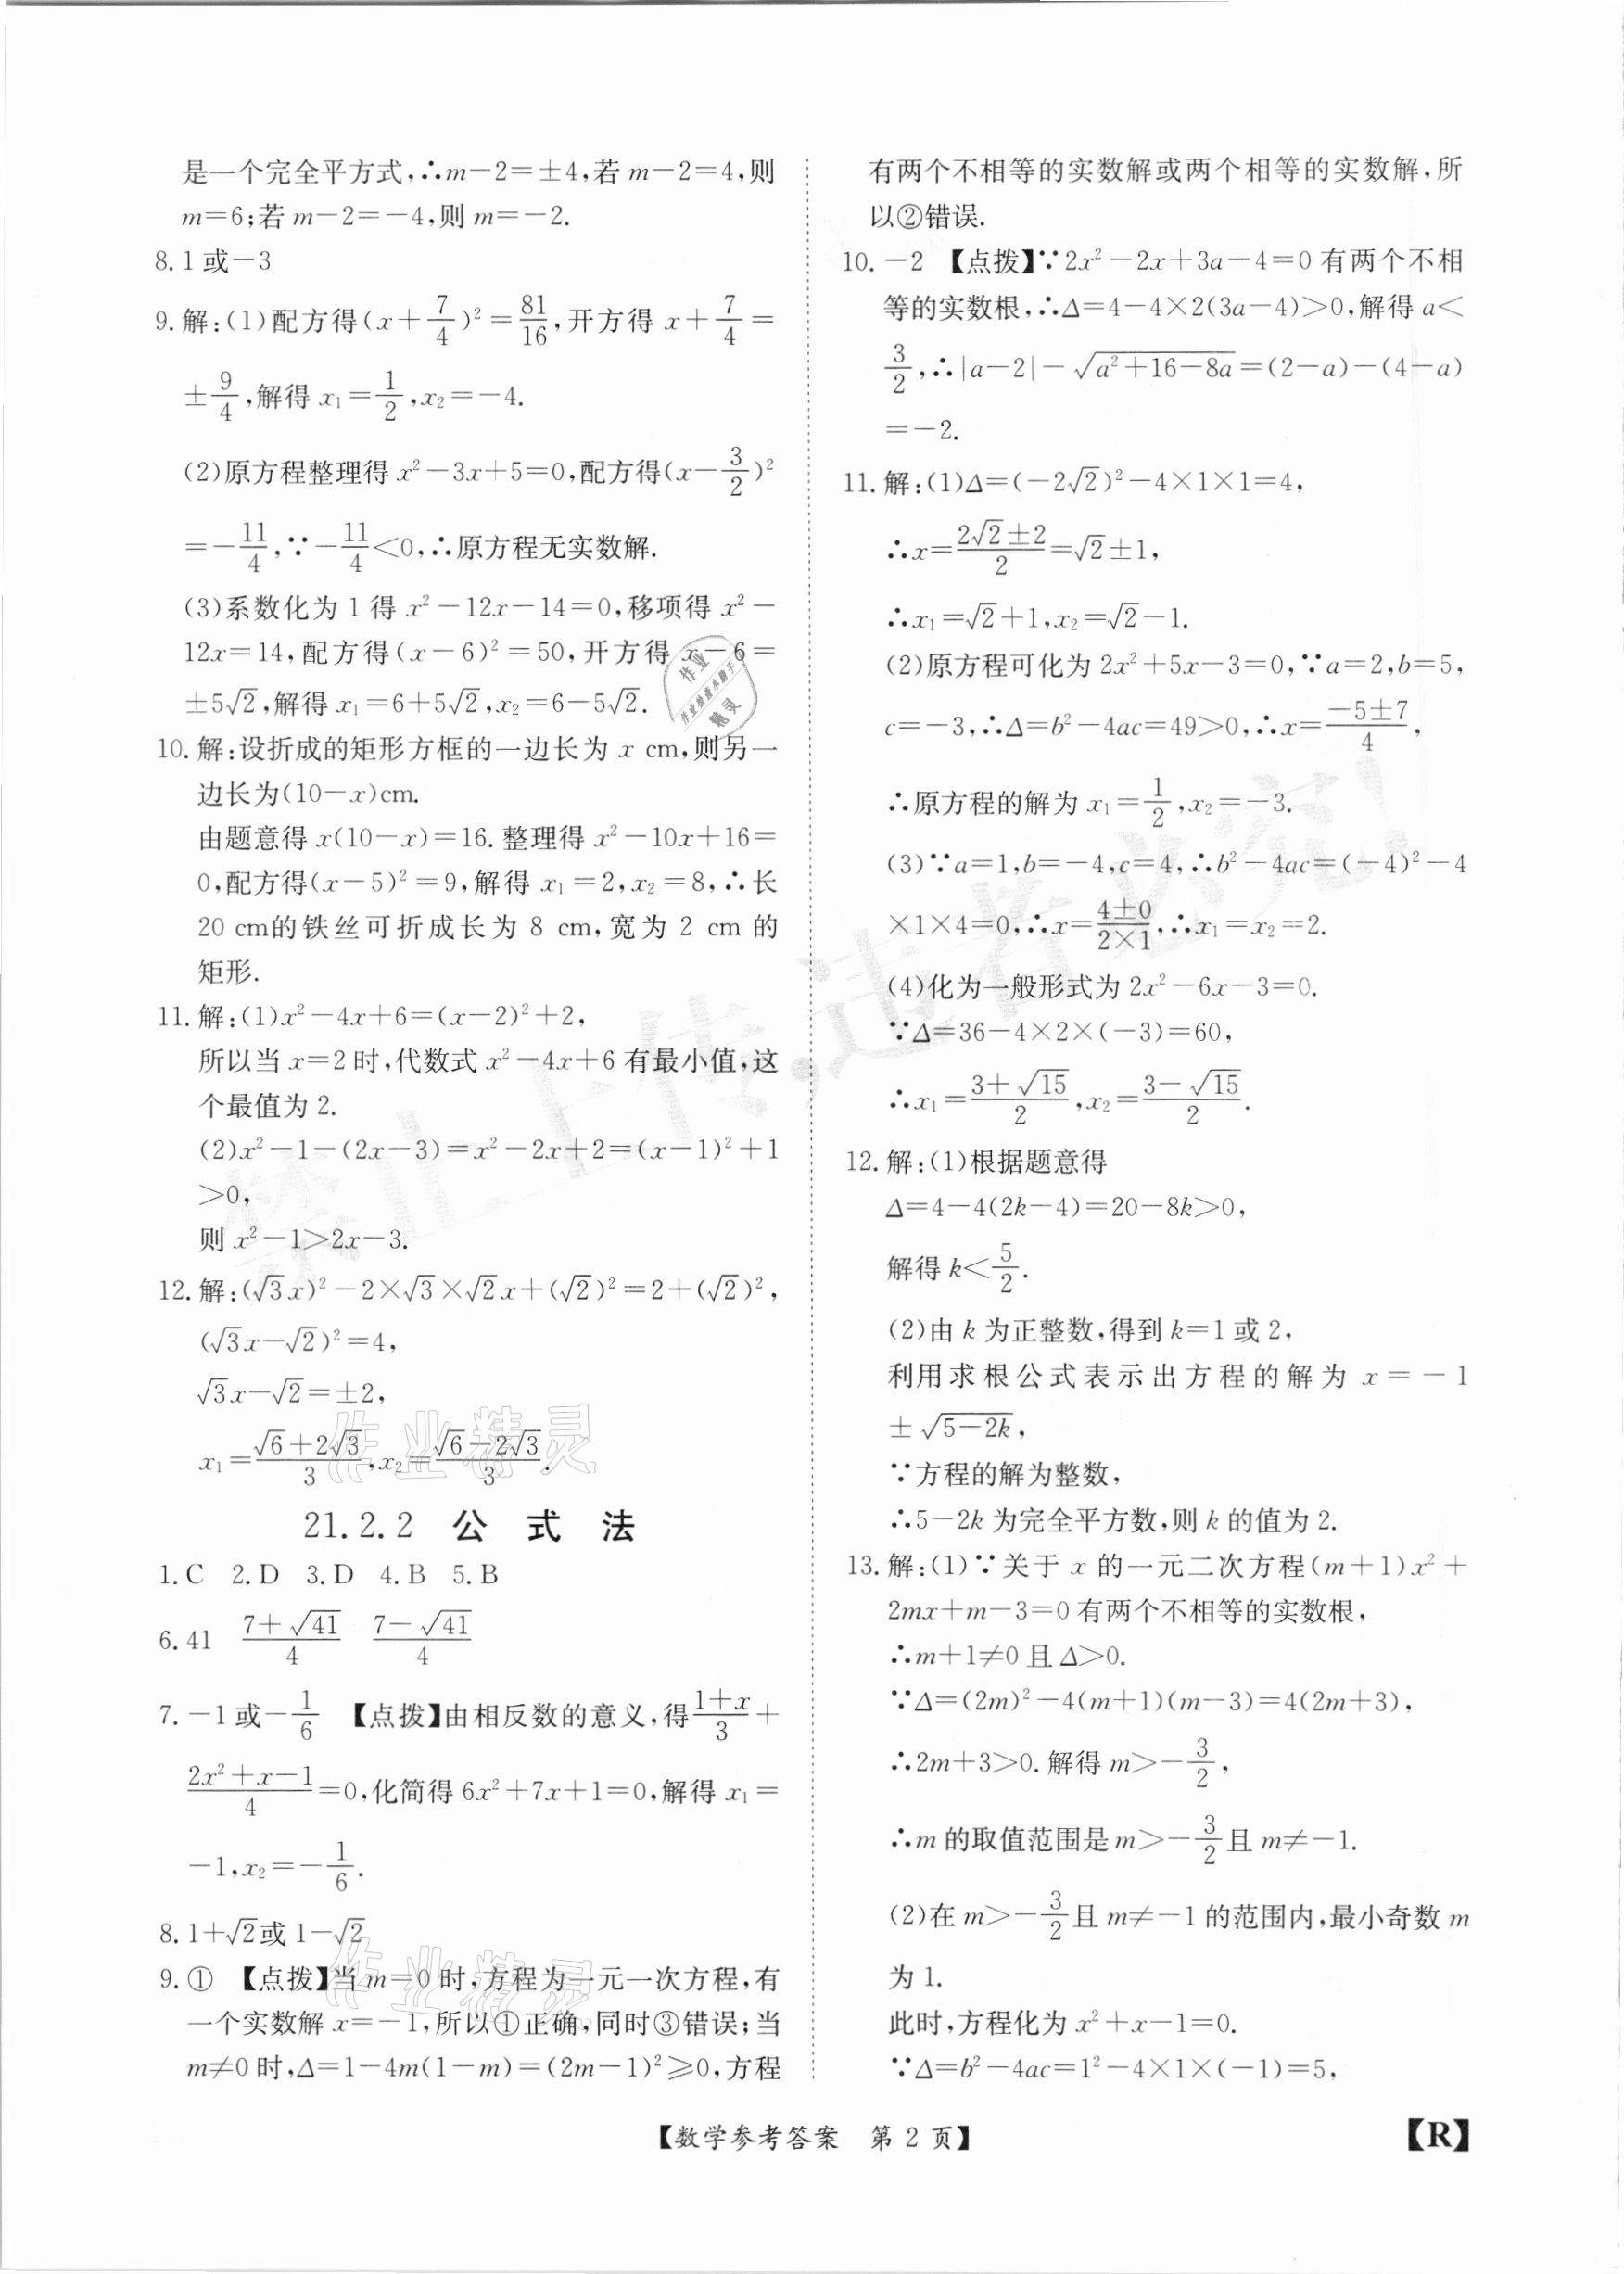 是一个完全平方式,∴m-2=±4,若 m-2=4,则
m=6;若 m-2=-4,则 m=-2.
8.1或-3
9.解:(1)配方得(x+7/4)²=81/16,开方得 x+7/4=
±9/4,解得 x₁=1/2,x₂=-4.
(2)原方程整理得 x²-3x+5=0,配方得(x-3/2)²
=-11/4,∵-11/4<0,∴原方程无实数解.
(3)系数化为 1 得 x²-12x-14=0,移项得 x²-
12x=14,配方得(x-6)²=50,开方得 x-6=
±5√2,解得 x₁=6+5√2,x₂=6-5√2.
10.解:设折成的矩形方框的一边长为 x cm,则另一
边长为(10-x)cm.
由题意得 x(10-x)=16.整理得 x²-10x+16=
0,配方得(x-5)²=9,解得 x₁=2,x₂=8,∴长
20 cm的铁丝可折成长为 8 cm,宽为 2 cm 的
矩形.
11.解:(1)x²-4x+6=(x-2)²+2,
所以当 x=2 时,代数式 x²-4x+6 有最小值,这
个最值为 2.
(2)x²-1-(2x-3)=x²-2x+2=(x-1)²+1
>0,
则 x²-1>2x-3.
12.解:(√3x)²-2×√3×√2x+(√2)²=2+(√2)²,
(√3x-√2)²=4,
√3x-√2=±2,
x₁=(√6+2√3)/3,x₂=(√6-2√3)/3.
21.2.2 公 式 法
1.C 2.D 3.D 4.B 5.B
6.41 (7+√41)/4 (7-√41)/4
7.-1或-1/6 【点拨】由相反数的意义,得(1+x)/3+
(2x²+x-1)/4=0,化简得 6x²+7x+1=0,解得 x₁=
-1,x₂=-1/6.
8.1+√2或 1-√2
9.① 【点拨】当 m=0 时,方程为一元一次方程,有
一个实数解 x=-1,所以①正确,同时③错误;当
m≠0 时,Δ=1-4m(1-m)=(2m-1)²≥0,方程
有两个不相等的实数解或两个相等的实数解,所
以②错误.
10.-2 【点拨】∵2x²-2x+3a-4=0 有两个不相
等的实数根,∴Δ=4-4×2(3a-4)>0,解得 a<
3/2,∴|a-2|-√(a²+16-8a)=(2-a)-(4-a)
=-2.
11.解:(1)Δ=(-2√2)²-4×1×1=4,
∴x=(2√2±2)/2=√2±1,
∴x₁=√2+1,x₂=√2-1.
(2)原方程可化为 2x²+5x-3=0,∵a=2,b=5,
c=-3,∴Δ=b²-4ac=49>0,∴x=(-5±7)/4,
∴原方程的解为 x₁=1/2,x₂=-3.
(3)∵a=1,b=-4,c=4,∴b²-4ac=(-4)²-4
×1×4=0,∴x=(4±0)/(2×1),∴x₁=x₂=2.
(4)化为一般形式为 2x²-6x-3=0.
∵Δ=36-4×2×(-3)=60,
∴x₁=(3+√15)/2,x₂=(3-√15)/2.
12.解:(1)根据题意得
Δ=4-4(2k-4)=20-8k>0,
解得 k<5/2.
(2)由 k 为正整数,得到 k=1 或 2,
利用求根公式表示出方程的解为 x=-1
±√(5-2k),
∵方程的解为整数,
∴5-2k 为完全平方数,则 k 的值为 2.
13.解:(1)∵关于 x 的一元二次方程(m+1)x²+
2mx+m-3=0 有两个不相等的实数根,
∴m+1≠0 且 Δ>0.
∵Δ=(2m)²-4(m+1)(m-3)=4(2m+3),
∴2m+3>0.解得 m>-3/2,
∴m 的取值范围是 m>-3/2且 m≠-1.
(2)在 m>-3/2且 m≠-1 的范围内,最小奇数 m
为 1.
此时,方程化为 x²+x-1=0.
∵Δ=b²-4ac=1²-4×1×(-1)=5,
【数学参考答案 第 2 页】
【R】
禁止上传,违者必究!
作业精灵
作业精灵
作业
作业检查小助手
精灵